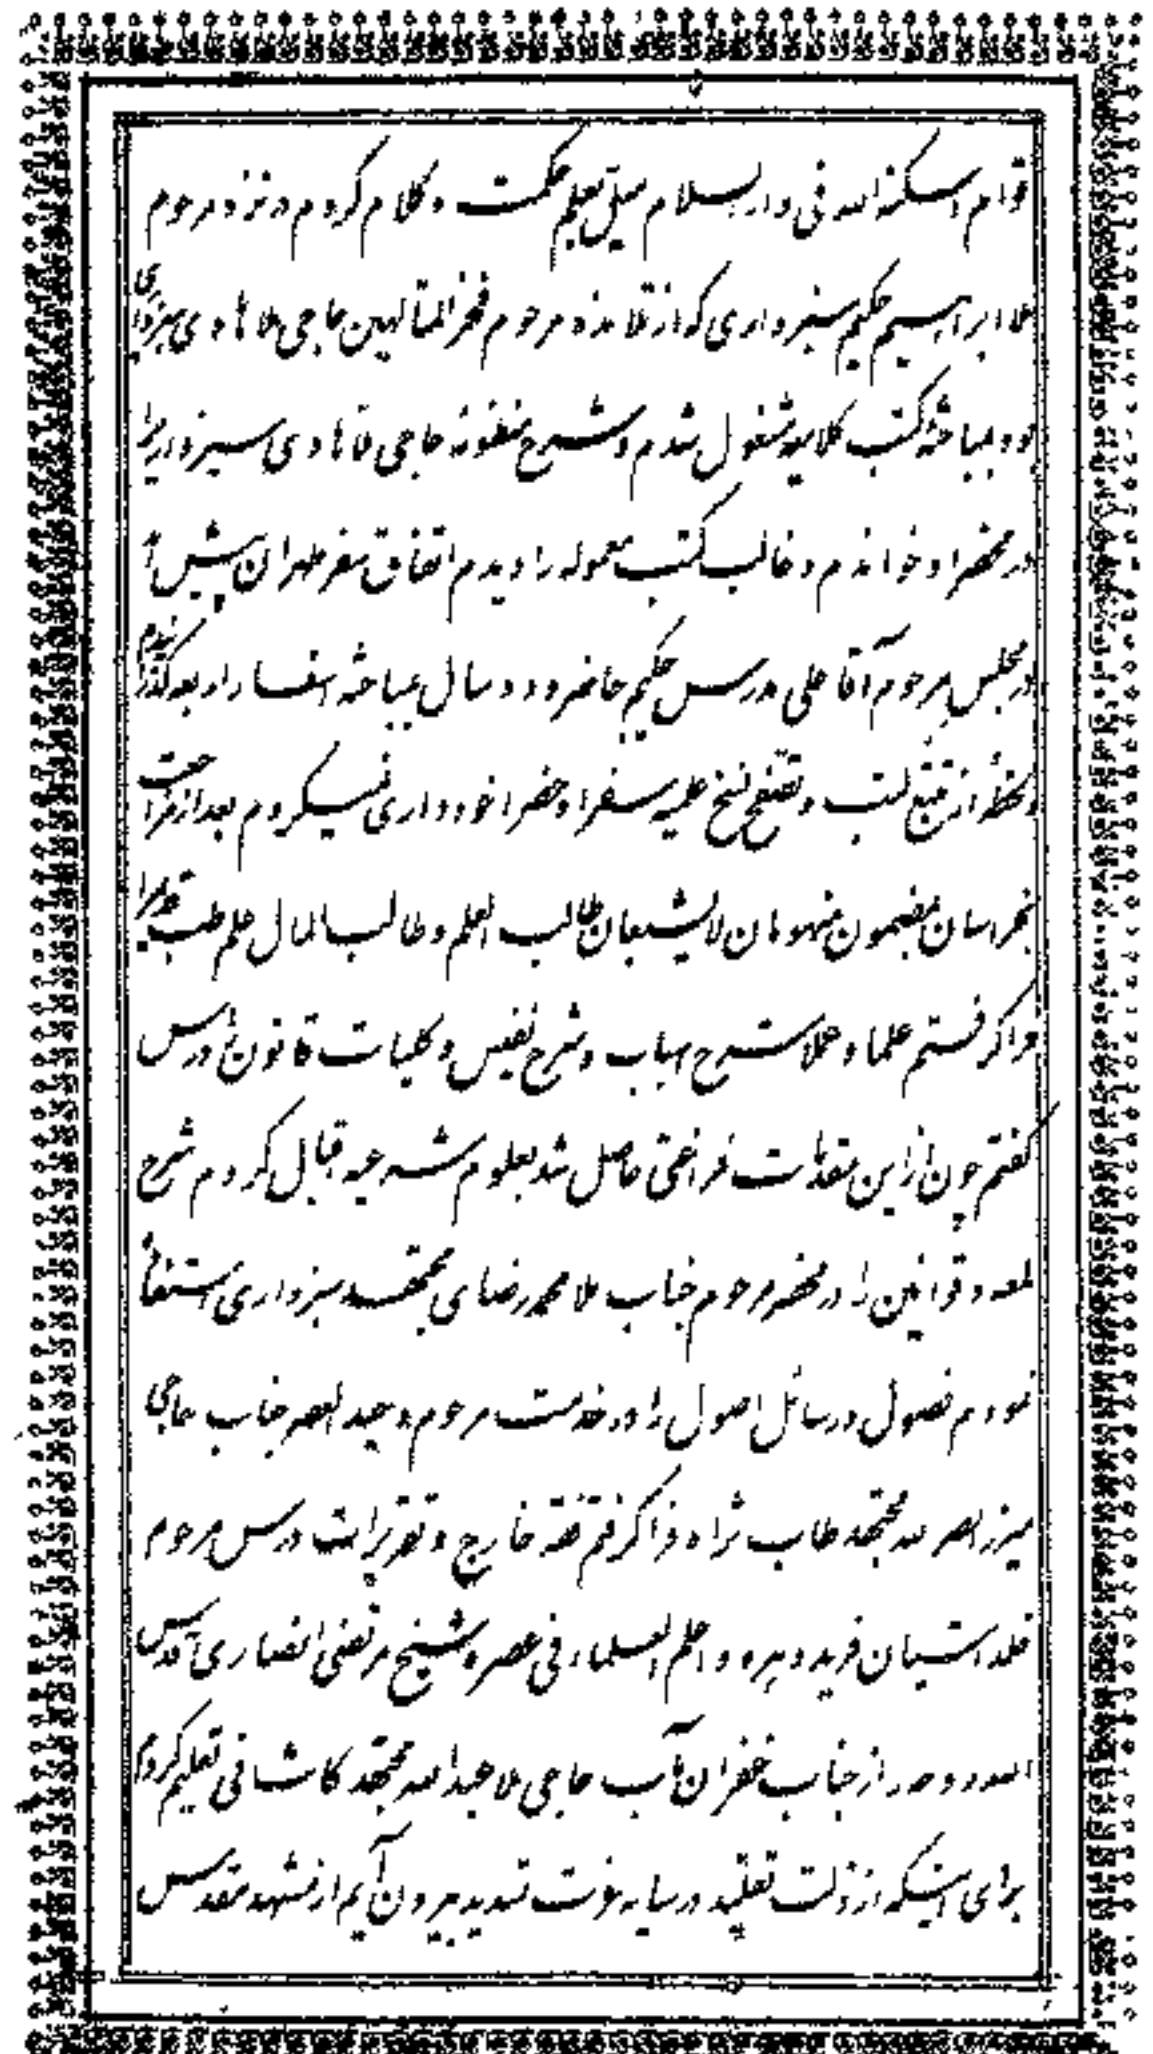 قوام اسکنه الله فی دار السلام میل تعلم حکمت و کلام کردم در نزد مرحوم
ملا ابراهیم حکیم سبزواری که از تلامذه مرحوم فخر المتألهین حاجی ملا هادی سبزواری
بود بمباحثه کتب کلامیه مشغول شدم و شرح منظومه حاجی ملا هادی سبزواری را
در محضر او خواندم و غالب کتب معموله را دیدم اتفاق سفر طهران پیش آمد
در مجلس مرحوم آقا علی مدرس حکیم حاضر و دو سال بمباحثه اسفار اربعه گذراندم
و لحظهٔ از تتبع کتب و تصفح نسخ علمیه سفرا و حضرا خودداری نمیکردم بعد از مراجعت
بخراسان بمضمون منهومان لا یشبعان طالب العلم و طالب المال علم طب قدیم را
فرا گرفتم علما و عملا شرح اسباب و شرح نفیس و کلیات قانون را درس
گفتم چون از این مقدمات فراغتی حاصل شد بعلوم شرعیه اقبال کردم شرح
لمعه و قوانین را در محضر مرحوم جناب ملا محمد رضای مجتهد سبزواری استفاده
نمودم فصول و رسائل اصول را در خدمت مرحوم وحید العصر جناب حاجی
میرزا نصر الله مجتهد طاب ثراه فرا گرفتم فقه خارج و تقریرات درس مرحوم
خلد آشیان فرید دهره و اعلم العلماء فی عصره شیخ مرتضی انصاری قدس
الله روحه را از جناب غفران مآب حاجی ملا عبد الله مجتهد کاشانی تعلیم کردم
برای اینکه از ذلت تقلید در سایه عزت بیرون آیم از مشهد مقدس